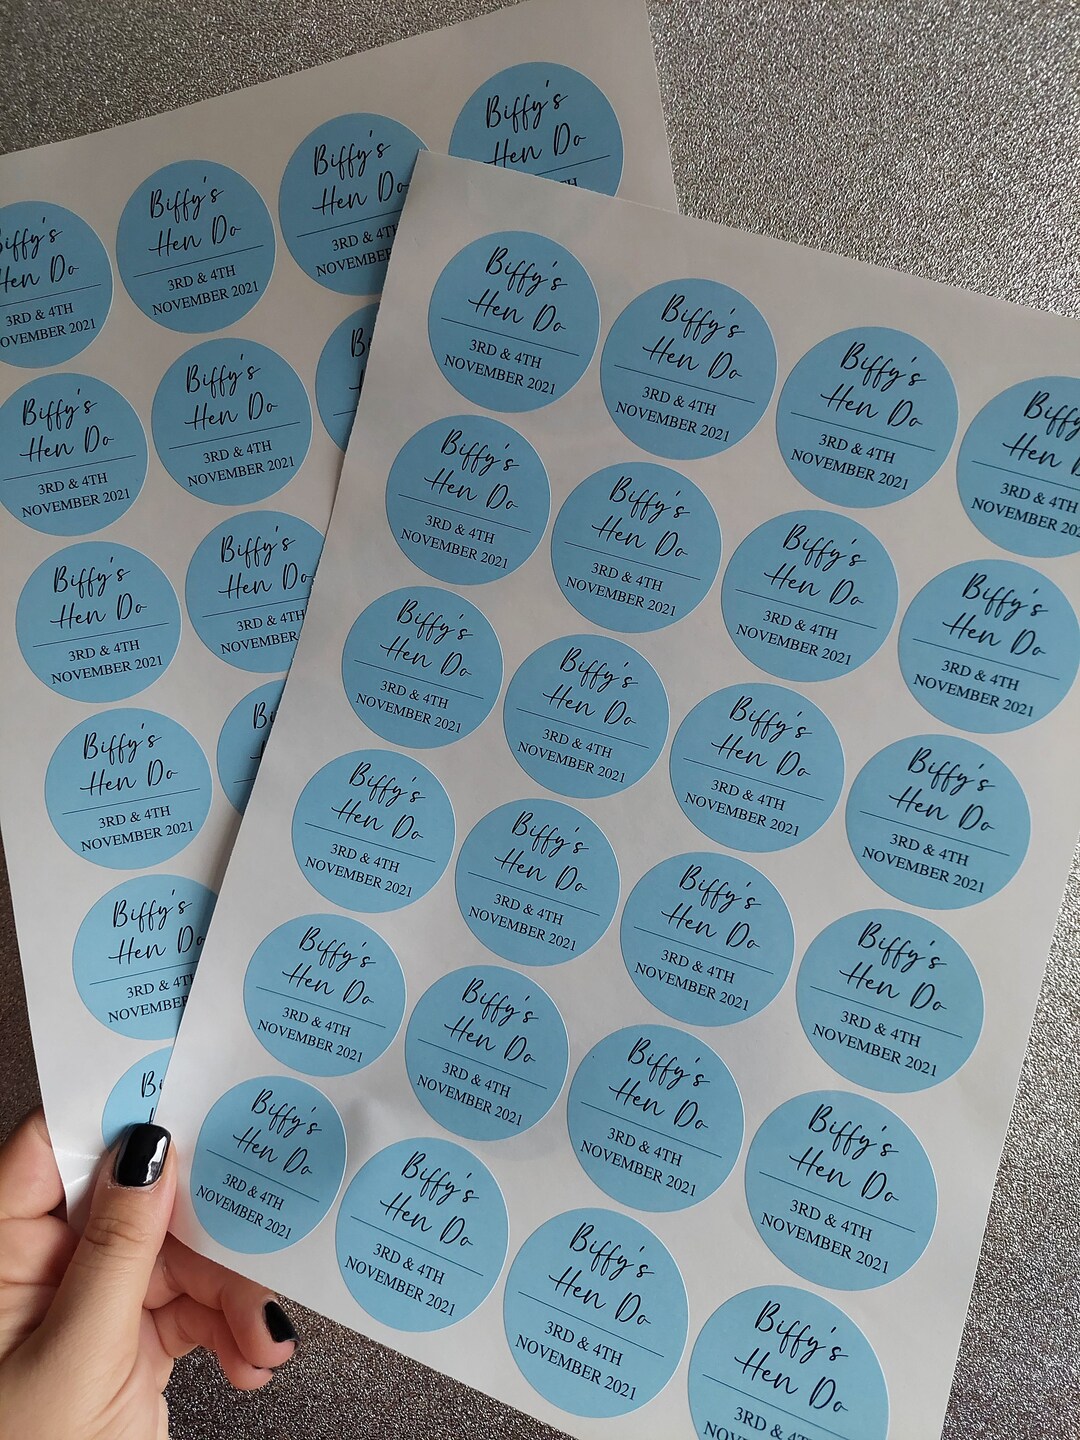 Biffy's
Hen Do
Biffy's
Hen Do
3RD & 4
NOVEMBER
Biffy's
Hen Do
3RD & 4TH
NOVEMBER 2021
Hen Do
3RD & 4TH
OVEMBER 2021
Biffy's
Hen Do
3RD & 4TH
NOVEMBER 2021
Biffy's
Hen Do
3RD & 4TH
NOVEMBER 2021
Biffy's
Hen Do
3RD & 4TH
NOVEMBER 2021
Biffy's
Hen Do
3RD & 4
NOVEMBER
Biffy's
Hen Do
3RD & 4TH
NOVEMBER 2021
Biffy's
Hen Do
3RD & 4
NOVEMBER
Biffy's
Hen Do
3RD & 4TH
NOVEMBER 2021
Biffy's
Hen Do
3RD & 4TH
NOVEMBER 2021
Biffy's
Hen Do
3RD & 4TH
NOVEMBER 2021
Biffy's
Hen
3RD & 4TH
NOVEMBER
Biffy's
Hen Do
3RD & 4TH
NOVEMBER 2021
Biffy's
Hen Do
3RD & 4TH
NOVEMBER 2021
Biffy's
Hen Do
3RD & 4TH
NOVEMBER 2021
Biffy's
Hen Do
3RD & 4TH
NOVEMBER 2021
Biffy's
Hen Do
3RD & 4TH
NOVEMBER 2021
Biffy's
Hen Do
3RD & 4TH
NOVEMBER 2021
Biffy's
Hen Do
3RD & 4TH
NOVEMBER 2021
Biffy's
Hen Do
3RD & 4TH
NOVEMBER 2021
Biffy's
Hen Do
3RD & 4TH
NOVEMBER 2021
Biffy's
Hen Do
3RD & 4TH
NOVEMBER 2021
Biffy's
Hen Do
3RD & 4TH
NOVEMBER 2021
Biffy's
Hen Do
3RD & 4TH
NOVEMBER 2021
Biffy's
Hen Do
3RD & 4TH
NOVEMBER 2021
Biffy's
Hen Do
3RD & 4TH
NOVEMBER 2021
Biffy's
Hen Do
3RD & 4TH
NOVEMBER 2021
Biffy's
Hen Do
3RD & 4TH
NOVEMBER 2021
Biffy's
Hen Do
3RD & 4TH
NOVEMBER 2021
Biffy's
Hen Do
3RD & 4TH
NOVEMBER 2021
Biffy's
Hen Do
3RD & 4TH
NOVEMBER 2021
Biffy's
Hen Do
3RD & 4T